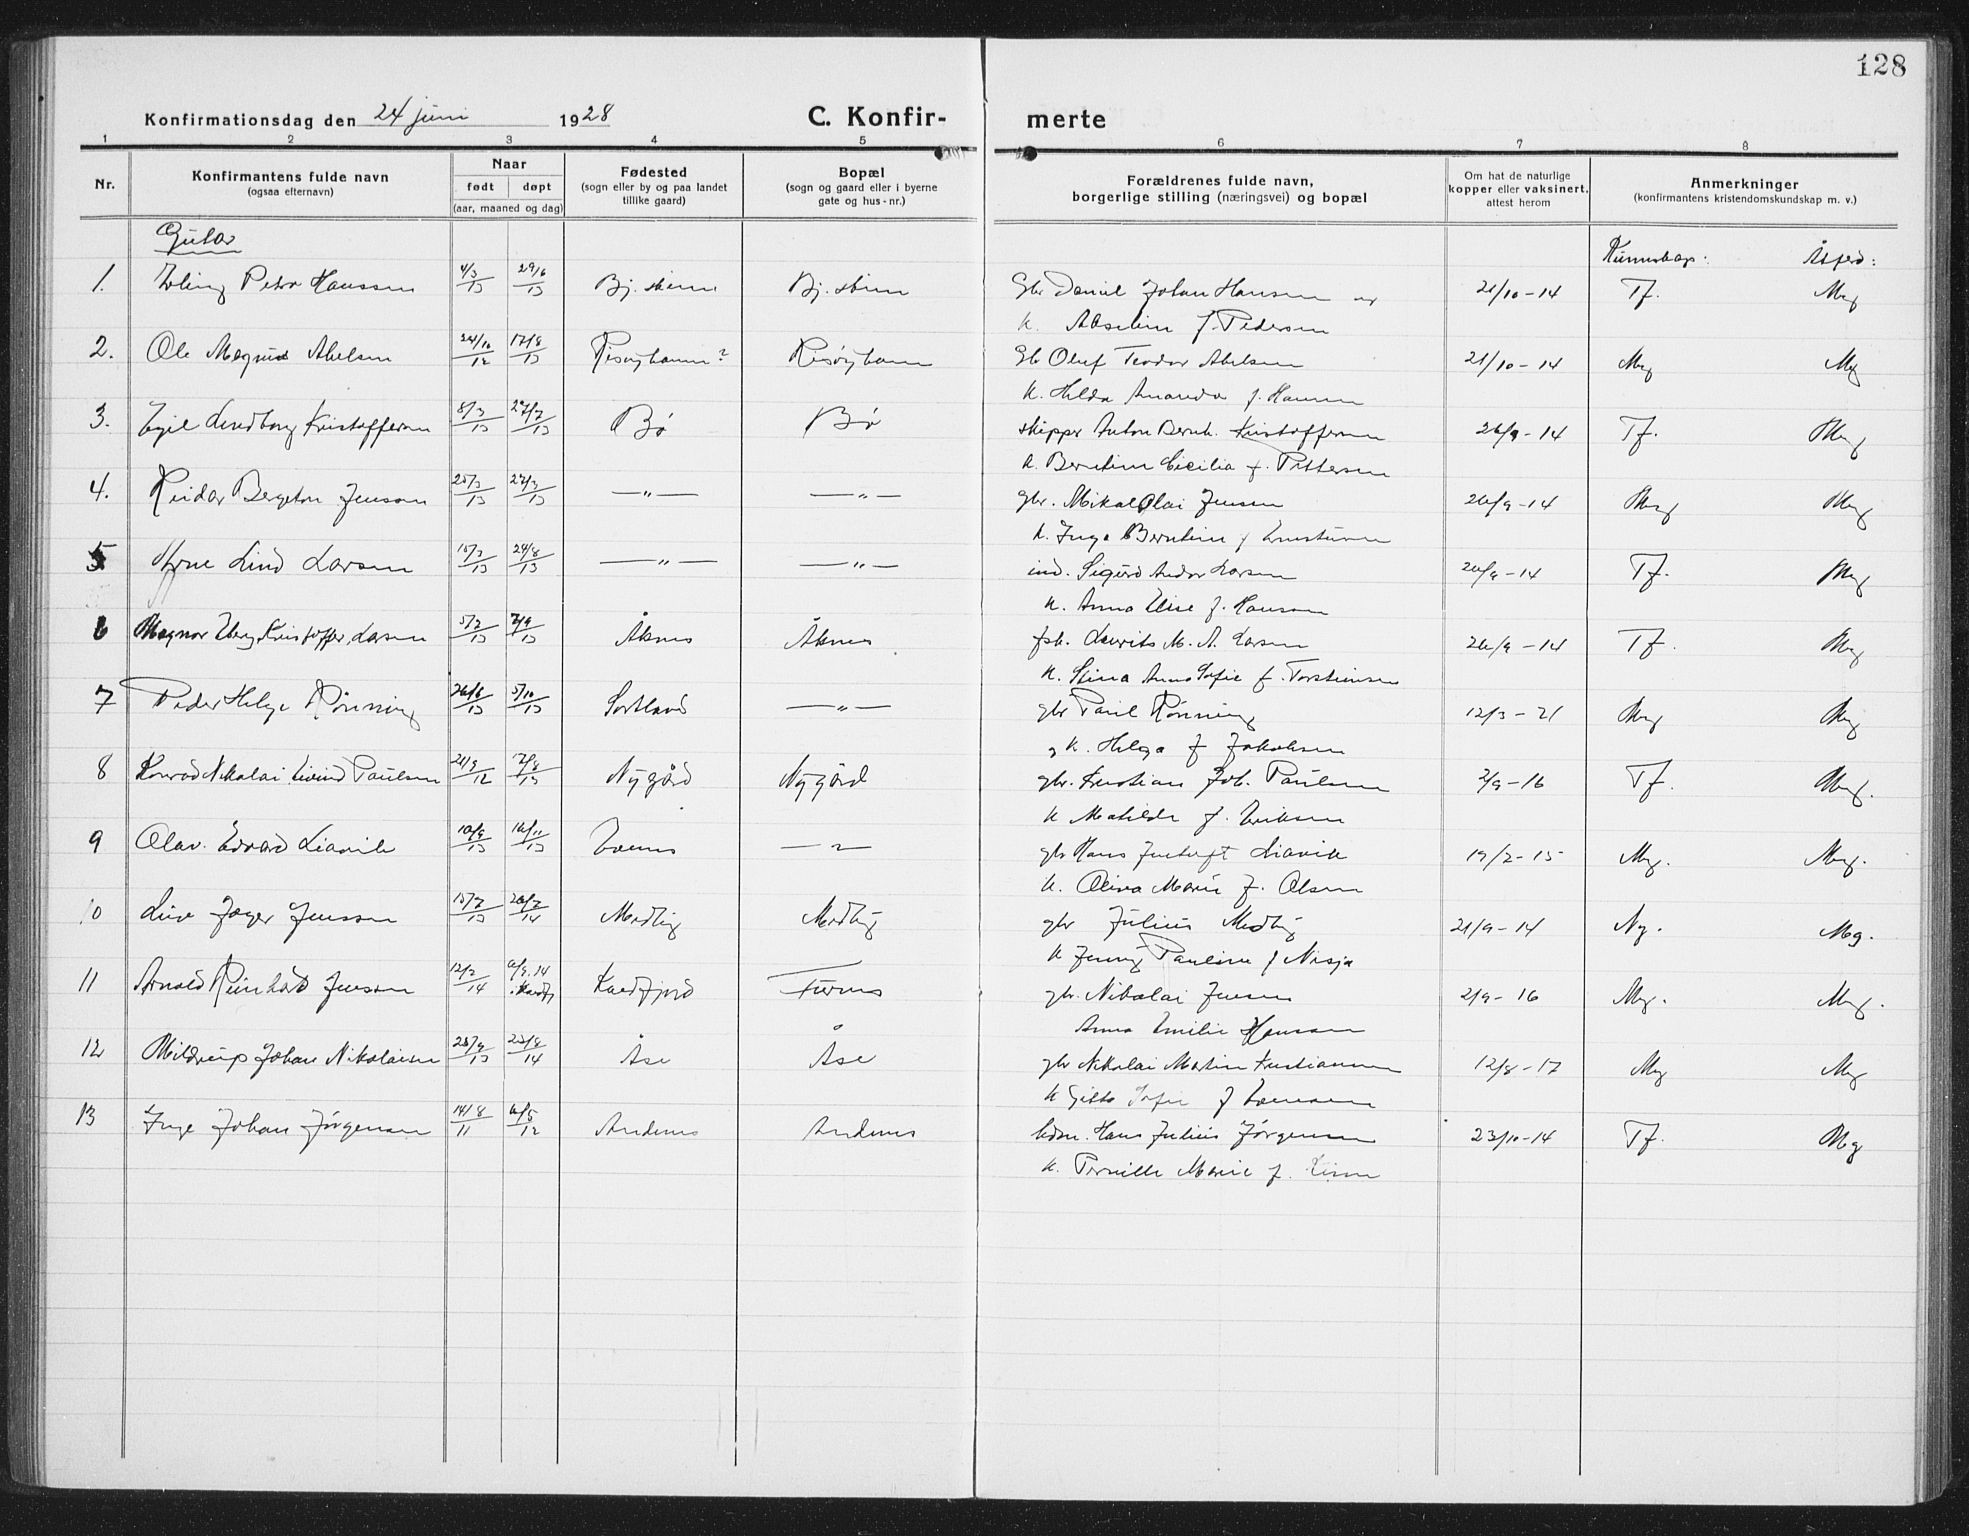 128
Konfirmationsdag den 24 juni 1928 C. Konfir- merte
1 2 3 4 5 6 7 8
Nr. Konfirmantens fulde navn (ogsaa efternavn) Naar født døpt (aar, maaned og dag) Fødested (sogn eller by og paa landet tillike gaard) Bopæl (sogn og gaard eller i byerne gate og hus-nr.) Forældrenes fulde navn, borgerlige stilling (næringsvei) og bopæl Om hat de naturlige kopper eller vaksinert, attest herom Anmerkninger (konfirmantens kristendomskundskap m. v.)
Gutar Kunnskap: Åtferd:
1. Erling Peder Hanssen 4/3 13 29/6 13 Bj. skinn Bj. skinn Gbr Daniel Johan Hansen og 21/10-14 Tf. Mg
k. Abselin f. Pedersen
2. Ole Magnus Abelsen 24/10 12 17/8 13 Risøyhamn? Risøyhamn Gbr Oluf Teodor Abelsen 21/10-14 Mg Mg
k. Hilda Amanda f. Hansen
3. Egil Lindborg Kristoffersen 8/3 13 27/7 13 Bø Bø skipper Anton Bernh. Kristoffersen 26/9-14 Tf. Mg
k. Berntine Cicilia f. Pettersen
4. Reidar Bergeton Jenson 25/3 13 27/3 13 —"— —"— gbr. Mikal Olai Jensen 26/9-14 Mg Mg
k. Inga Berntine f
5 Arne Lind Larsen 15/3 13 24/8 13 —"— —"— ind. Sigurd Andor Larsen 26/9-14 Tf. Mg
k. Anna Elise f. Hansen
6 Magnor Eberg Kristoffer Larsen 5/2 13 7/9 13 Åknes Åknes fsk. Laurits M. A. Larsen 26/9-14 Tf. Mg
k. Stina Anna Sofie f. Torsteinsen
7 Peder Helge Rønning 26/6 13 5/10 13 Sortland —"— gbr Paul Rønning 12/3-21 Mg Mg
g k. Helga f Jakobsen
8 Konrad Nikolai Eivind Paulsen 21/9 12 17/8 13 Nygård Nygård gbr. Kristian Joh. Paulsen 2/9-16 Tf. Mg.
k Matilde f. Eriksen
9 Olav Edvard Liavik 10/9 13 16/11 13 —"— gbr Hans Liavik 19/2-15 Mg. Mg.
k. Oliva Marie f. Olsen
10 Jenssen 15/7 13 26/7 14 Medby Medby gbr Julius Medby 21/9-14 Ng. Mg.
k Jenny Pauline f Nesja
11 Arnold Reinhard Jenson 12/2 14 6/9.14 i Kvedfj Kvedfjord gbr. Nikolai Jensen 2/9-16 Mg. Mg.
Anna Emilie Hansen
12 Johan Nikolaisen 28/9 13 23/8 14 Åse Åse gbr Nikolai Martin Kristiansen 12/8-17 Mg Mg
k Gitta Sofie f
13 Inge Johan Jørgensen 14/8 11 6/5 12 Andenes Andenes Hans Julius Jørgensen 23/10-14 Tf. Mg
k. Pernille Marie f.